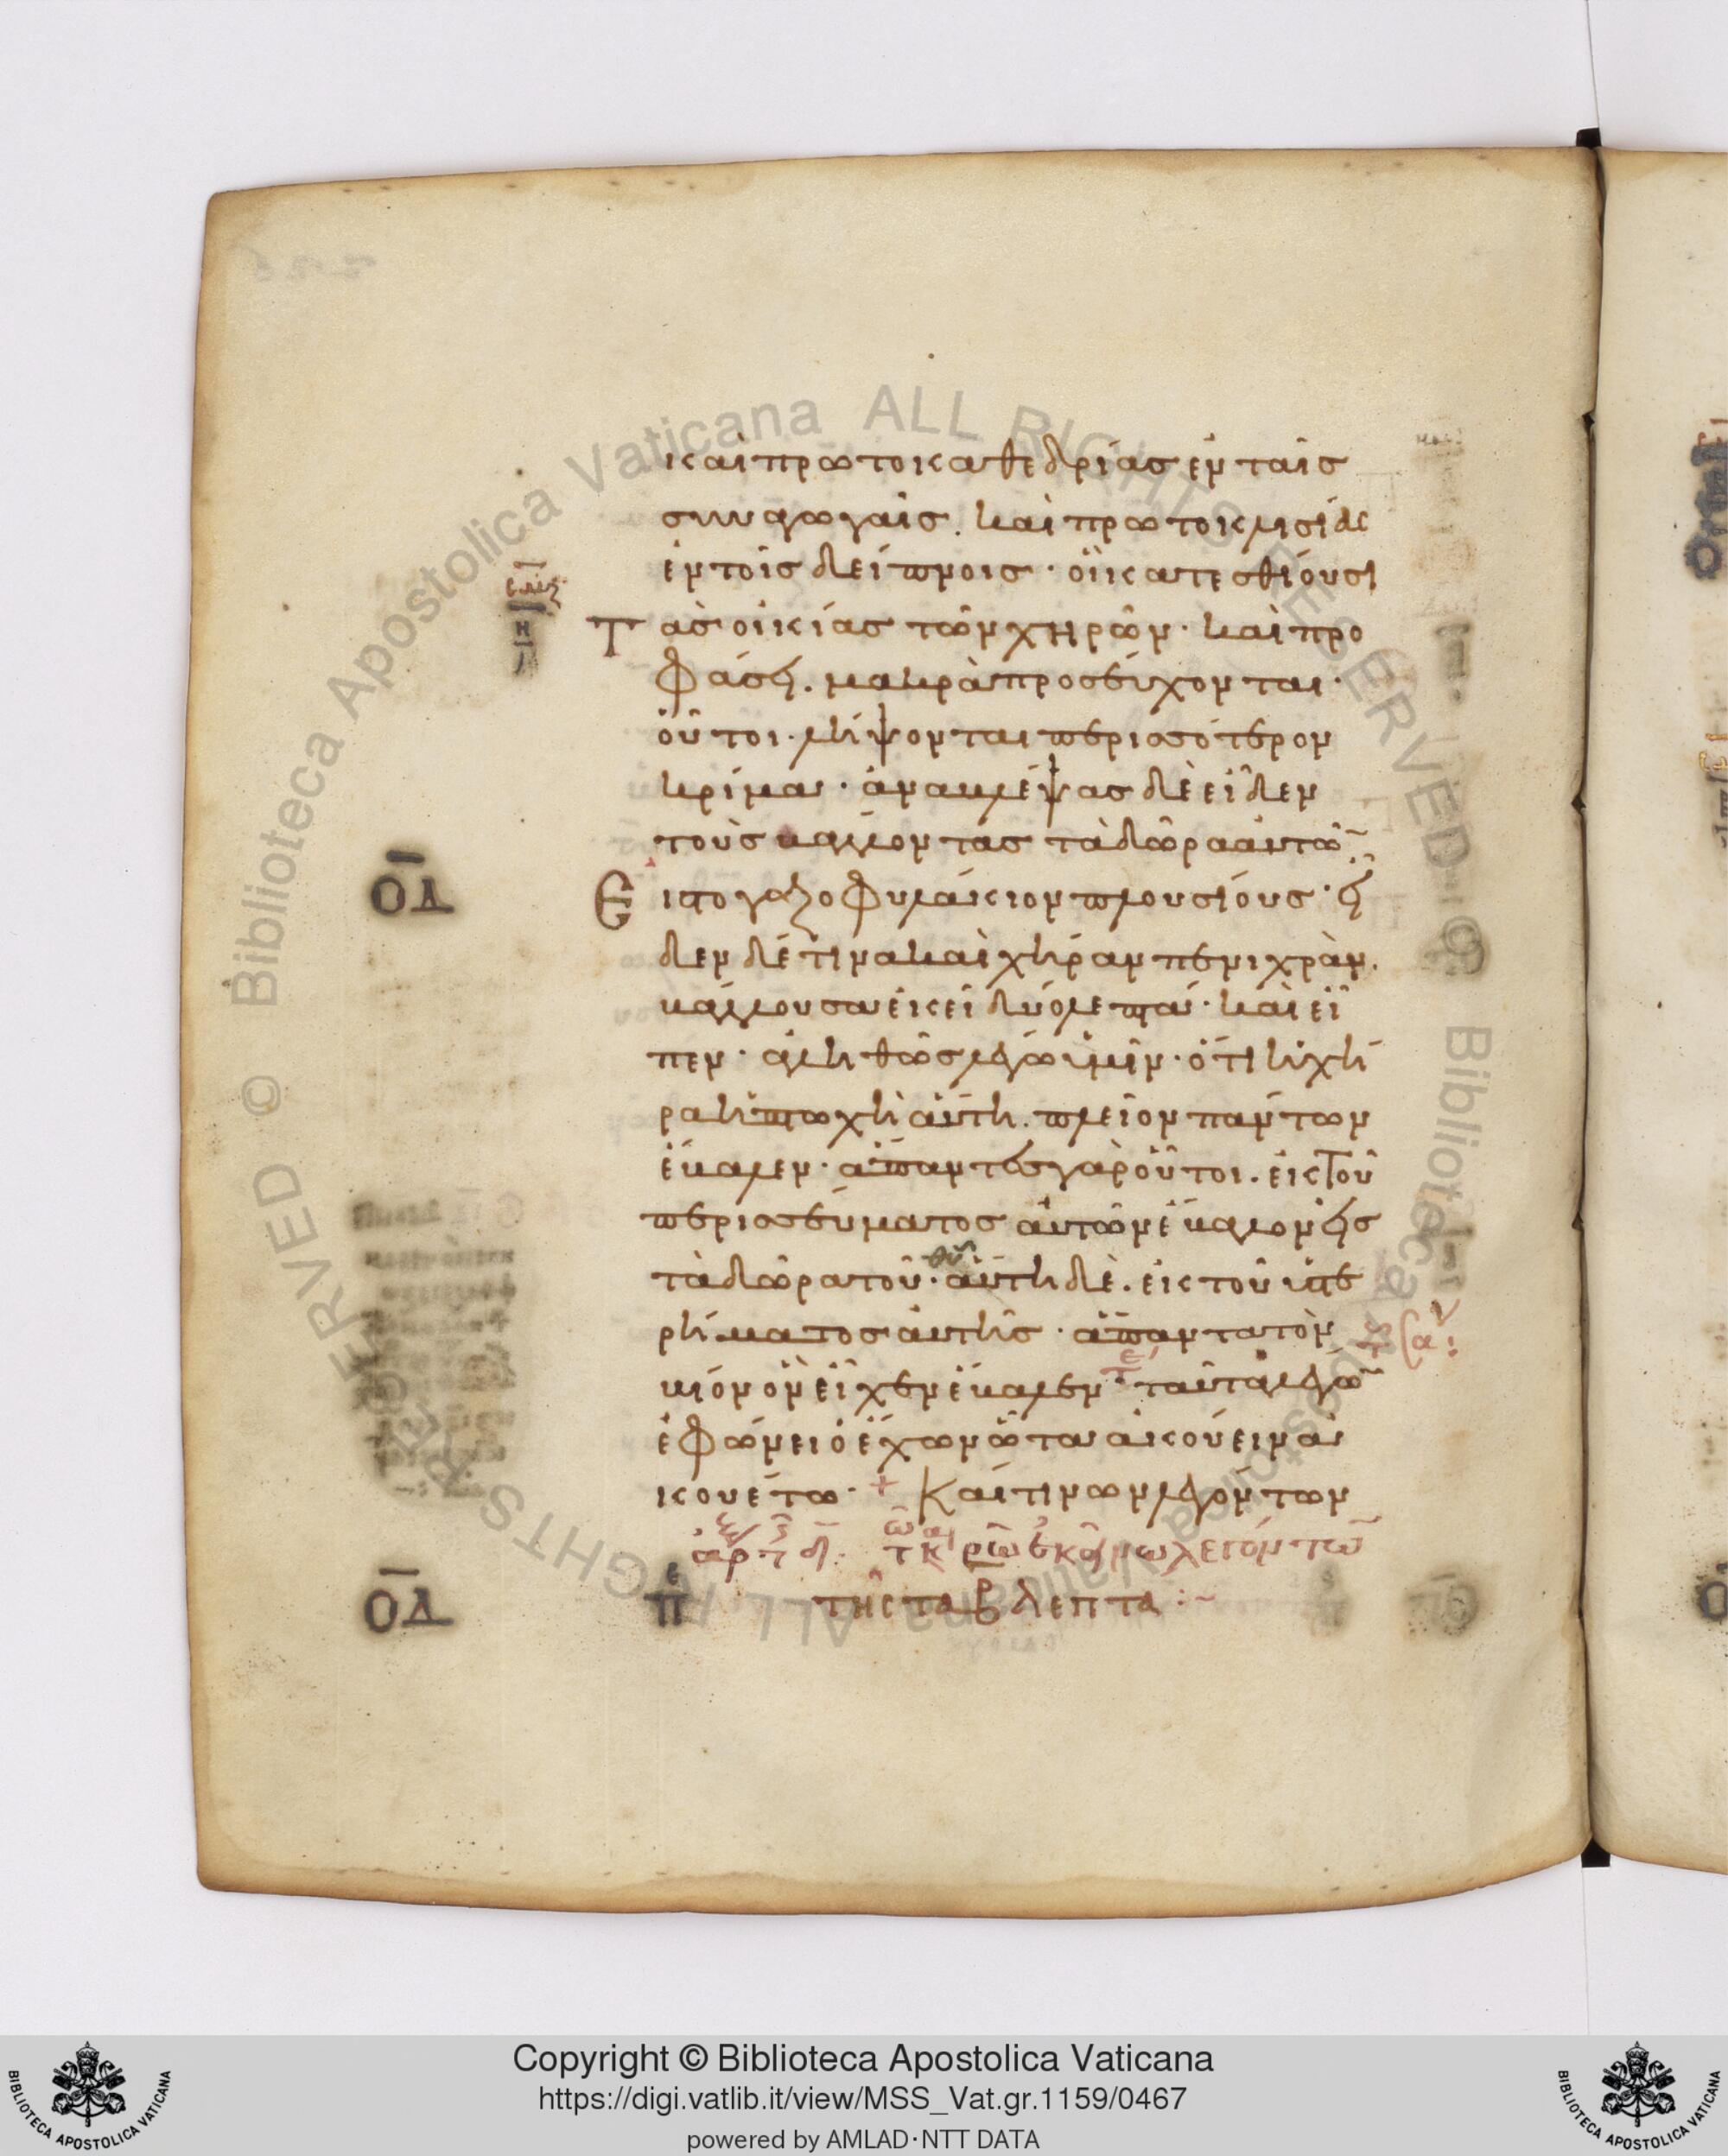 καὶ πρωτοκαθεδρίας ἐν ταῖς
συναγωγαῖς. καὶ πρωτοκλισίας
ἐν τοῖς δείπνοις· οἳ κατεσθίουσι
Τ ὰς οἰκίας τῶν χηρῶν· καὶ προ
φάσει. μακρὰ προσεύχονται·
οὗτοι. λήψονται περισσότερον
κρίμα· ἀναβλέψας δὲ εἶδεν
τοὺς βάλλοντας τὰ δῶρα αὐτῶ̅
ΟΔ
Ε ἰς τὸ γαζοφυλάκιον πλουσίους· εἶ
δεν δέ τινα καὶ χήραν πενιχρὰν.
βάλλουσαν ἐκεῖ δύο λεπτά· καὶ εἶ
πεν· ἀληθῶς λέγω ὑμῖν· ὅτι ἡ χή
ρα ἡ πτωχὴ αὕτη. πλεῖον πάντων
ἔβαλεν· ἅπαντες γὰρ οὗτοι. ἐκ τοῦ
περισσεύματος αὐτῶν ἔβαλον εἰς
τὰ δῶρα τοῦ θυ· αὕτη δὲ. ἐκ τοῦ ὑστε
ρήματος αὐτῆς· ἅπαντα τὸν
βίον ὃν εἶχεν ἔβαλεν· ταῦτα λέγω̅
ἐφώνει ὁ ἔχων ὦτα ἀκούειν ἀ
κουέτω· + Καί τινων λεγόντων
ΟΔ
τῆς τὰ β λεπτά :~
Copyright © Biblioteca Apostolica Vaticana
https://digi.vatlib.it/view/MSS_Vat.gr.1159/0467
powered by AMLAD·NTT DATA
BIBLIOTECA APOSTOLICA VATICANA
BIBLIOTECA APOSTOLICA VATICANA
Biblioteca Apostolica Vaticana ALL RIGHTS RESERVED ©
Biblioteca Apostolica Vaticana ALL RIGHTS RESERVED ©